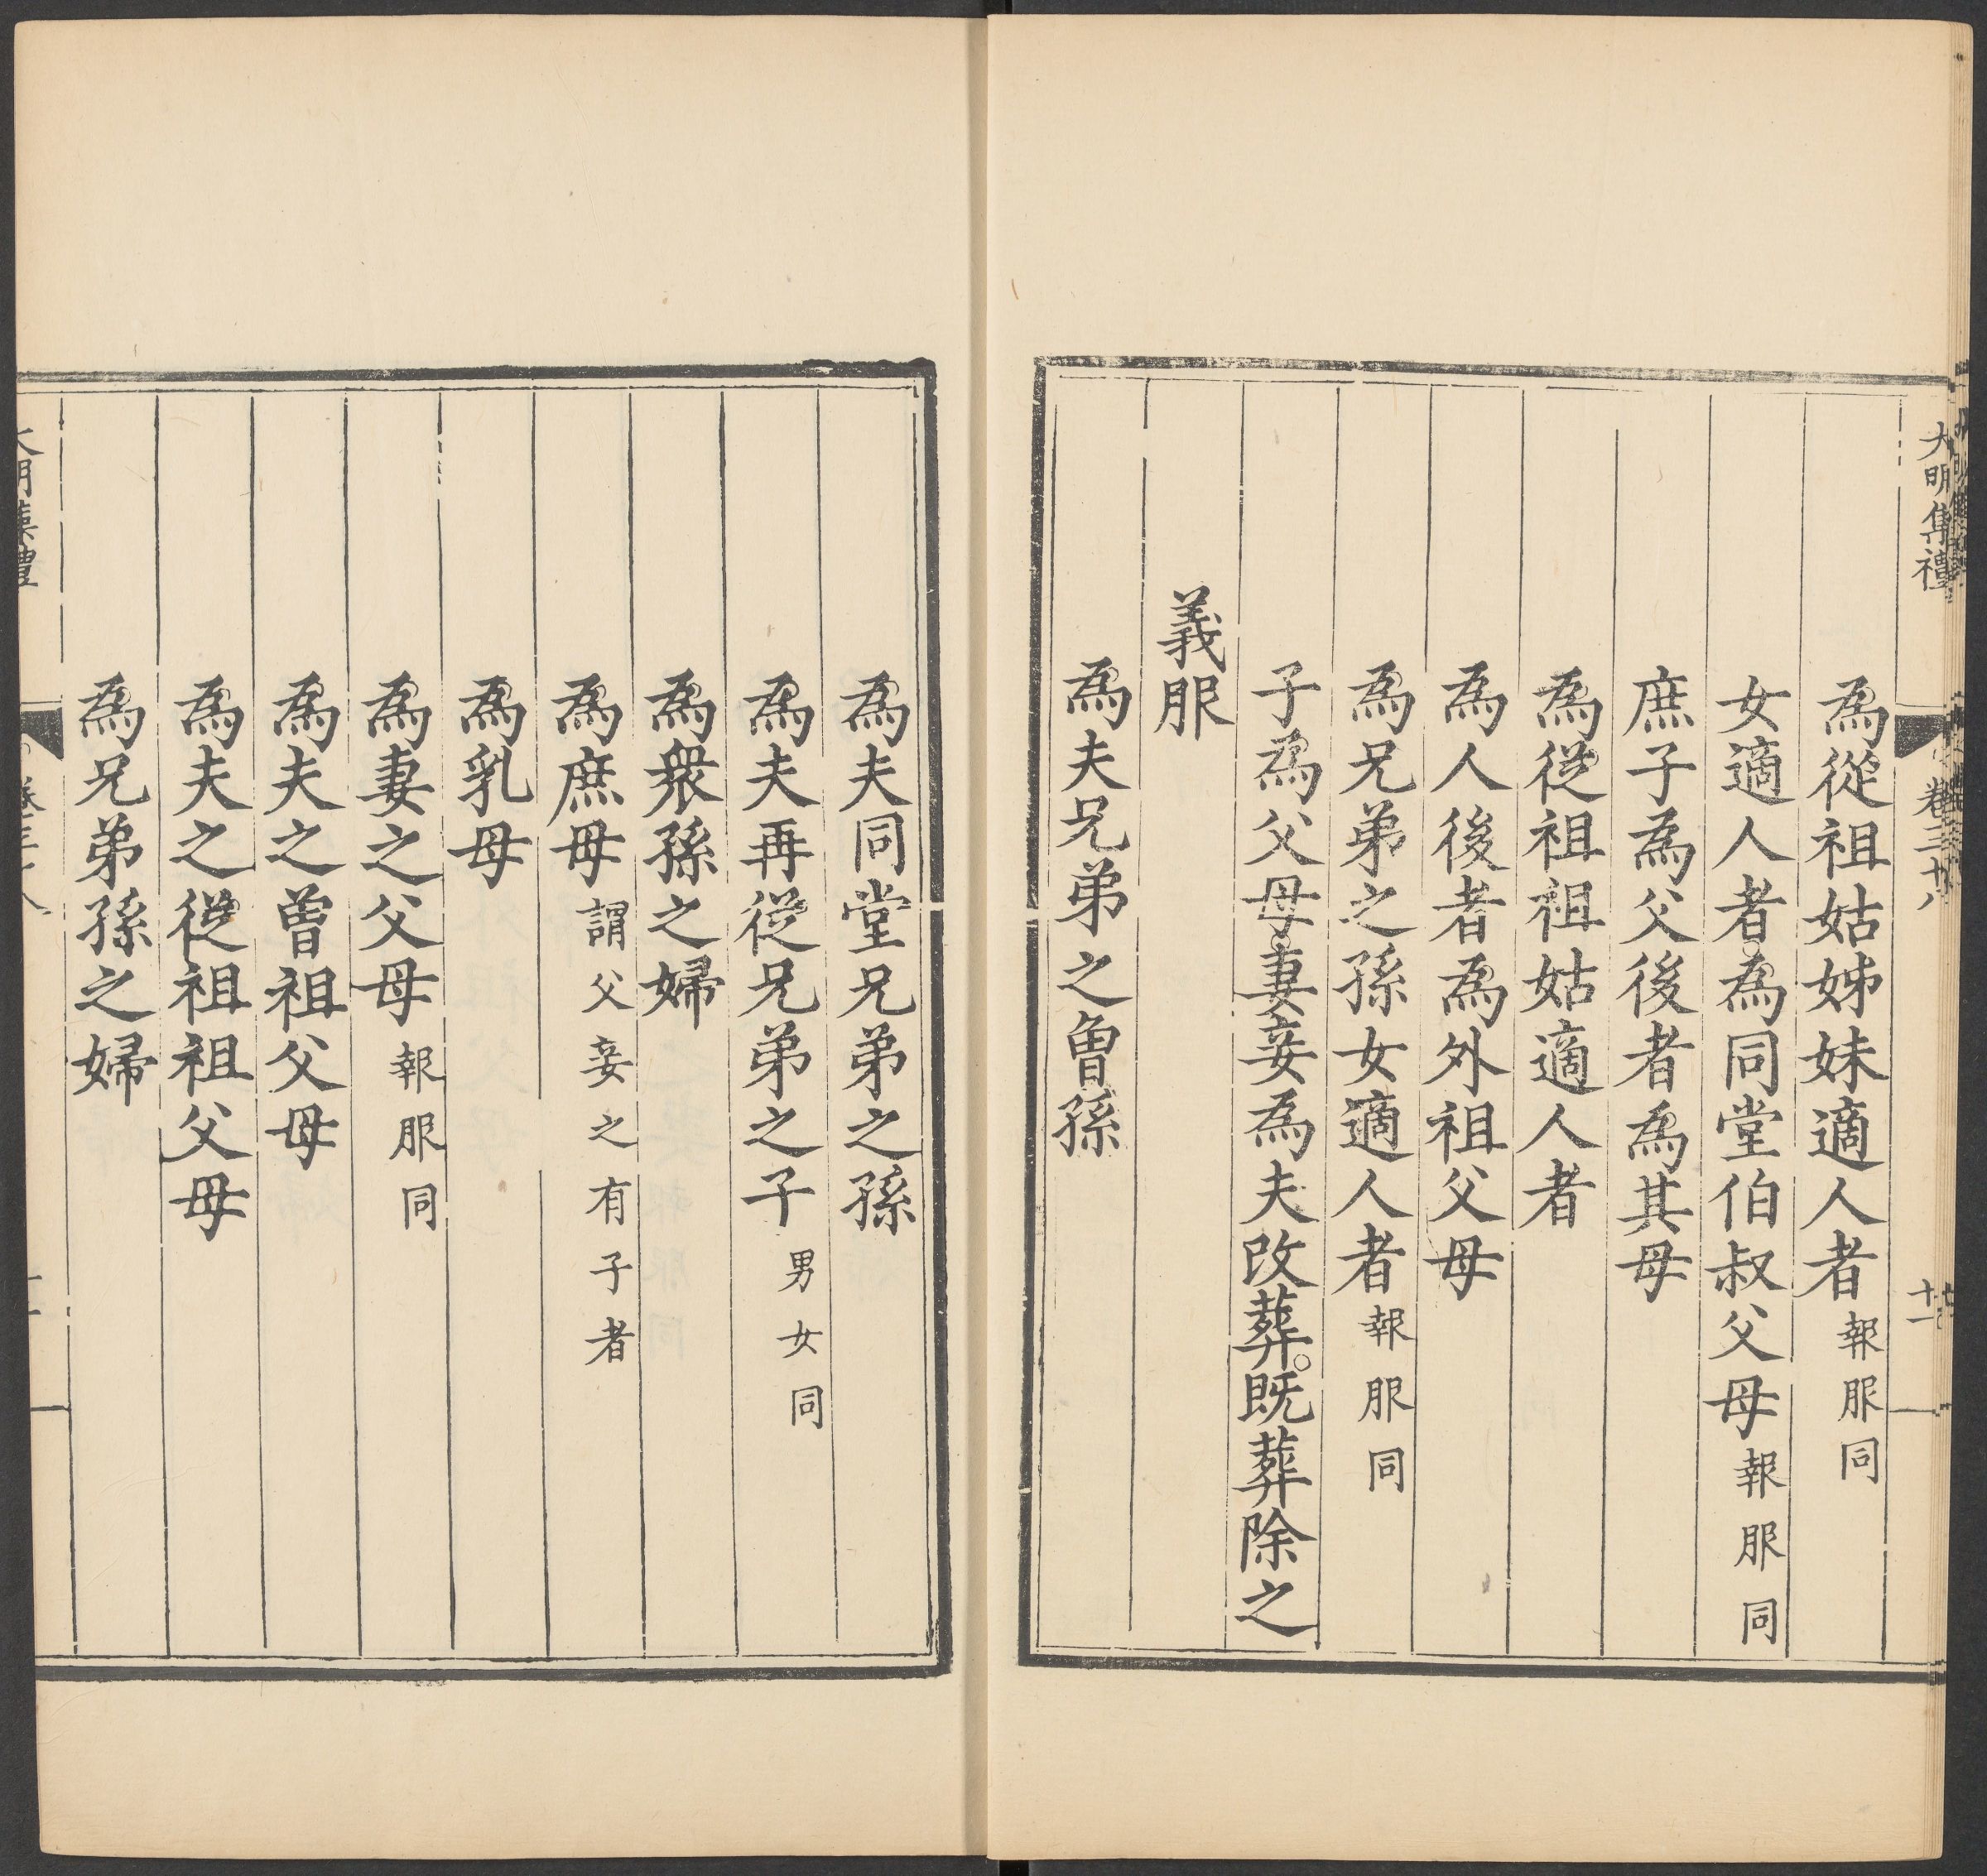 大明集禮 卷三十八 十一
為從祖姑姊妹適人者報服同
女適人者為同堂伯叔父母報服同
庶子為父後者為其母
為從祖祖姑適人者
為人後者為外祖父母
為兄弟之孫女適人者報服同
子為父母妻妾為夫改葬。既葬除之
義服
為夫兄弟之曾孫
為夫同堂兄弟之孫
為夫再從兄弟之子男女同
為衆孫之婦
為庶母謂父妾之有子者
為乳母
為妻之父母報服同
為夫之曾祖父母
為夫之從祖祖父母
為兄弟孫之婦
大明集禮